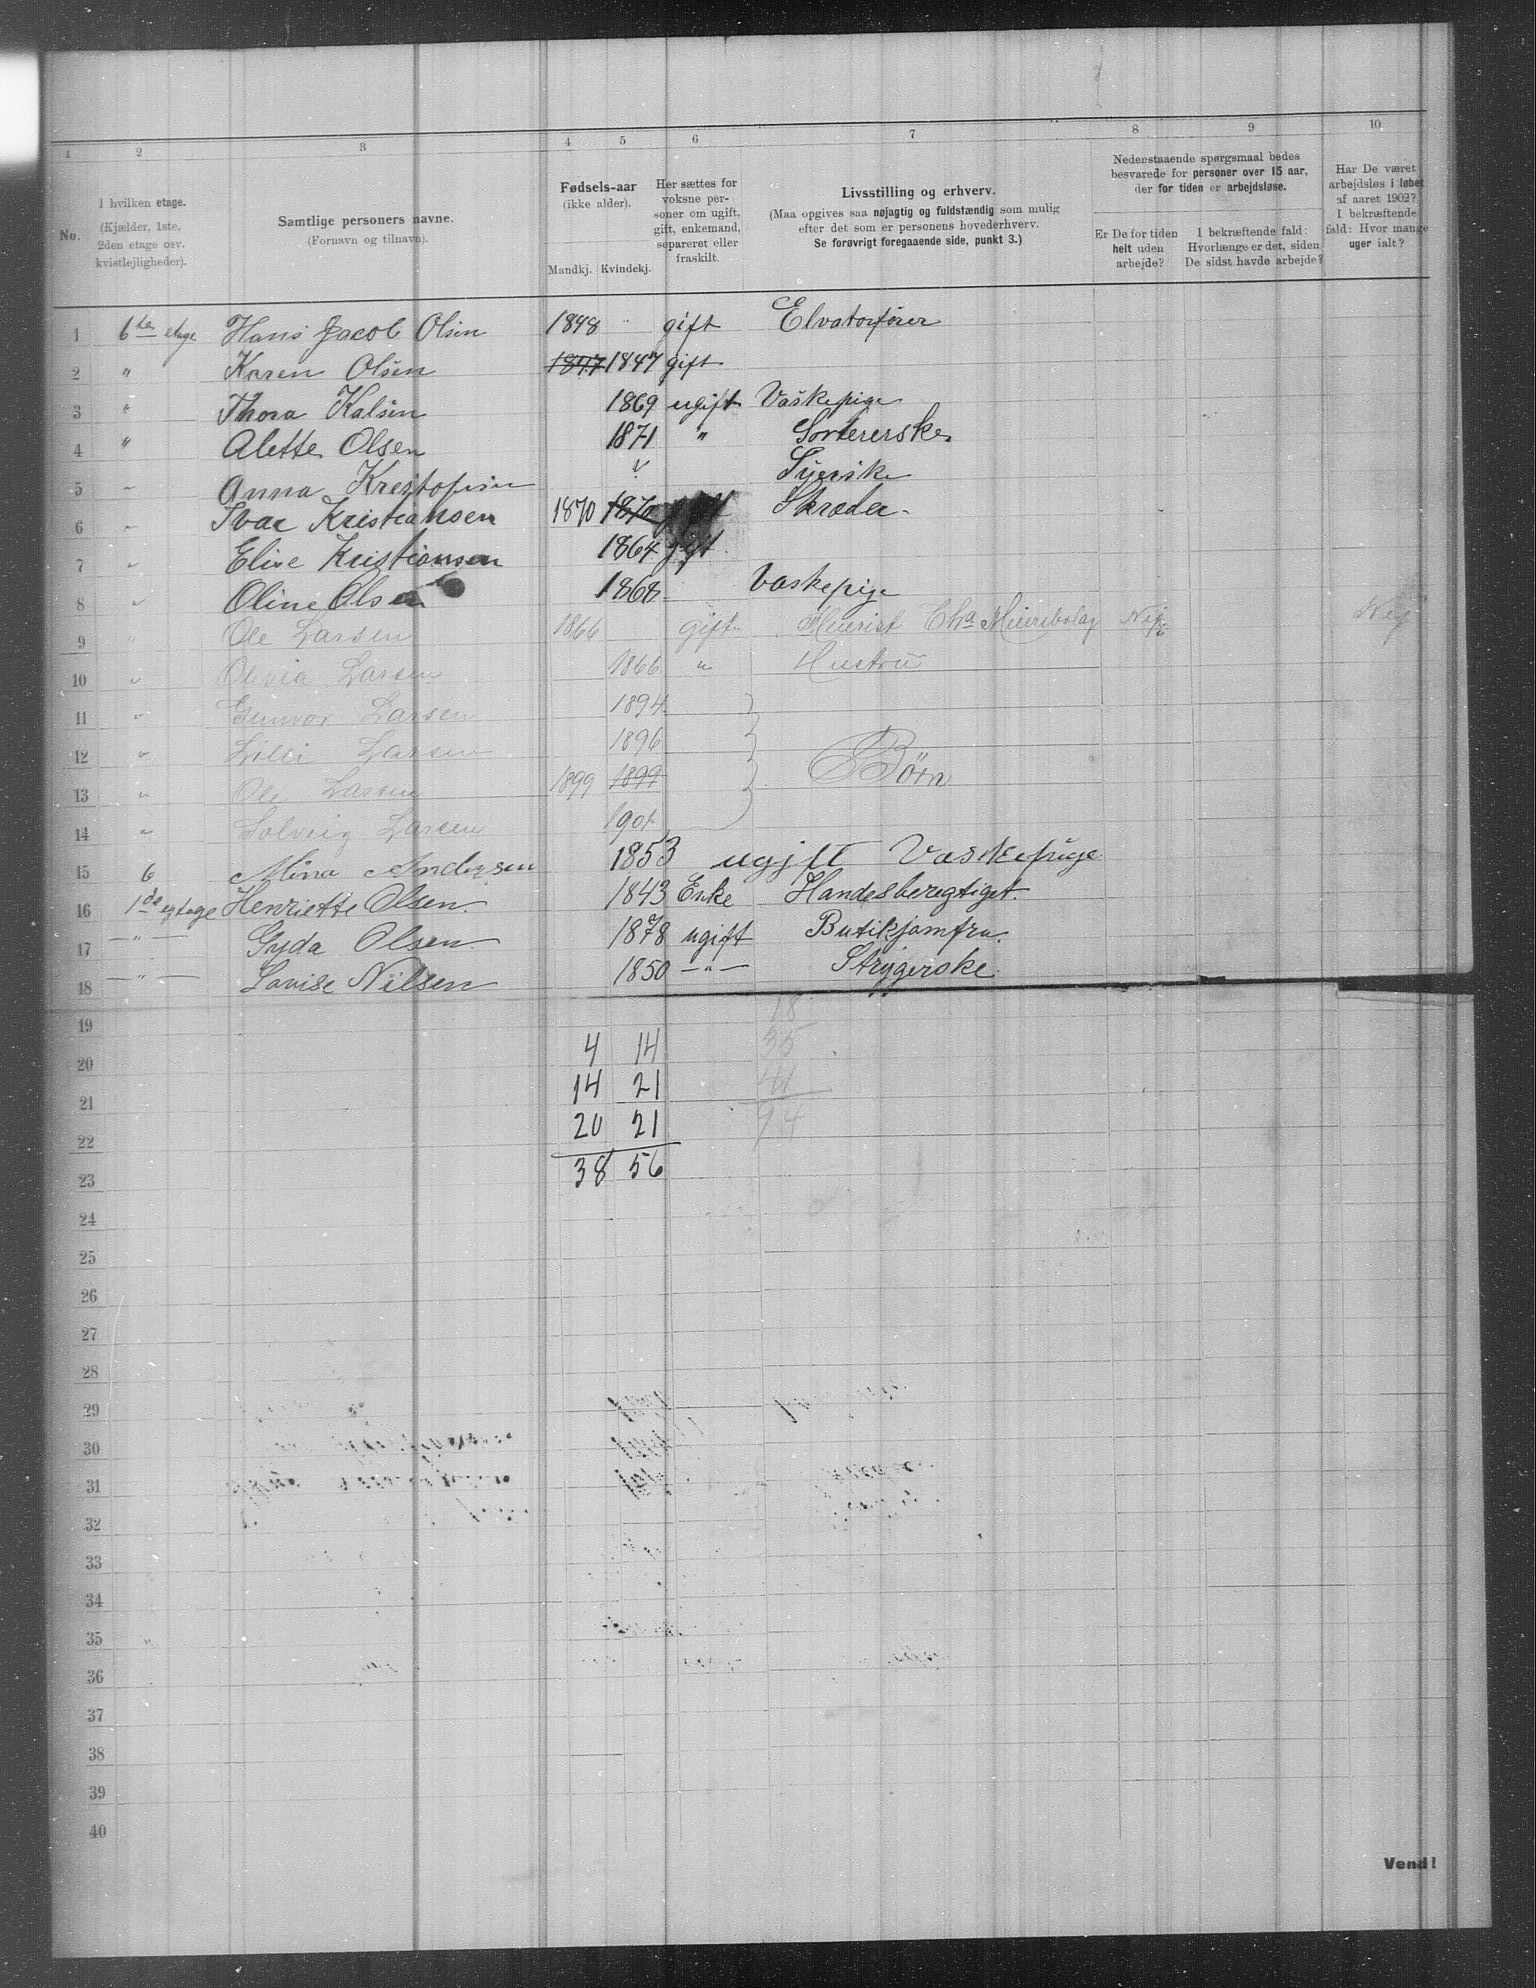 1 2 3 4 5 6 7 8 9 10
No.
I hvilken etage.
(Kjælder, 1ste.
2den etage osv.
kvistlejligheder).
Samtlige personers navne.
(Fornavn og tilnavn).
Fødsels-aar
(ikke alder).
Mandkj. Kvindekj.
Her sættes for
voksne per-
soner om ugift,
gift, enkemand,
separeret eller
fraskilt.
Livsstilling og erhverv.
(Maa opgives saa nøjagtig og fuldstændig som mulig
efter det som er personens hovederhverv.
Se forøvrigt foregaaende side, punkt 3.)
Nedenstaaende spørgsmaal bedes
besvarede for personer over 15 aar,
der for tiden er arbejdsløse.
Er De for tiden
helt uden
arbejde?
I bekræftende fald:
Hvorlænge er det, siden
De sidst havde arbejde?
Har De været
arbejdsløs i løbet
af aaret 1902?
I bekræftende
fald: Hvor mange
uger ialt?
1 6te etage Hans Jacob Olsen 1848 gift Elvatorfører
2 " Karen Olsen 1847 1847 gift
3 " Thora Kalsen 1869 ugift Vaskepige
4 " Alette Olsen 1871 " Sortererske
5 " Anna Krestofersen " Syerske
6 " Ivar Kristiansen 1870 1870 Skræder
7 " Elise Kristiansen 1864 gift
8 " Oline Olsen 1868 Vaskepige
9 " Ole Larsen 1866 gift Meierist Chra Meieribolag Nei Nei
10 " Olivia Larsen 1866 " Hustru
11 " Gunvor Larsen 1894
12 " Lilli Larsen 1896
Børn
13 " Ole Larsen 1899 1899
14 " Solveig Larsen 1901
15 6 Mina Andersen 1853 ugift Vaskepige
16 1de egtage Henriette Olsen 1843 Enke Handesberegtiget.
17 " Gyda Olsen 1878 ugift Butikjomfru.
18 " Lovise Nilsen 1850 " Strygerske
19 18
20 4 14 35
21 14 21 41
22 20 21 94
23 38 56
24
25
26
27
28
29
30
31
32
33
34
35
36
37
38
39
40
Vend!